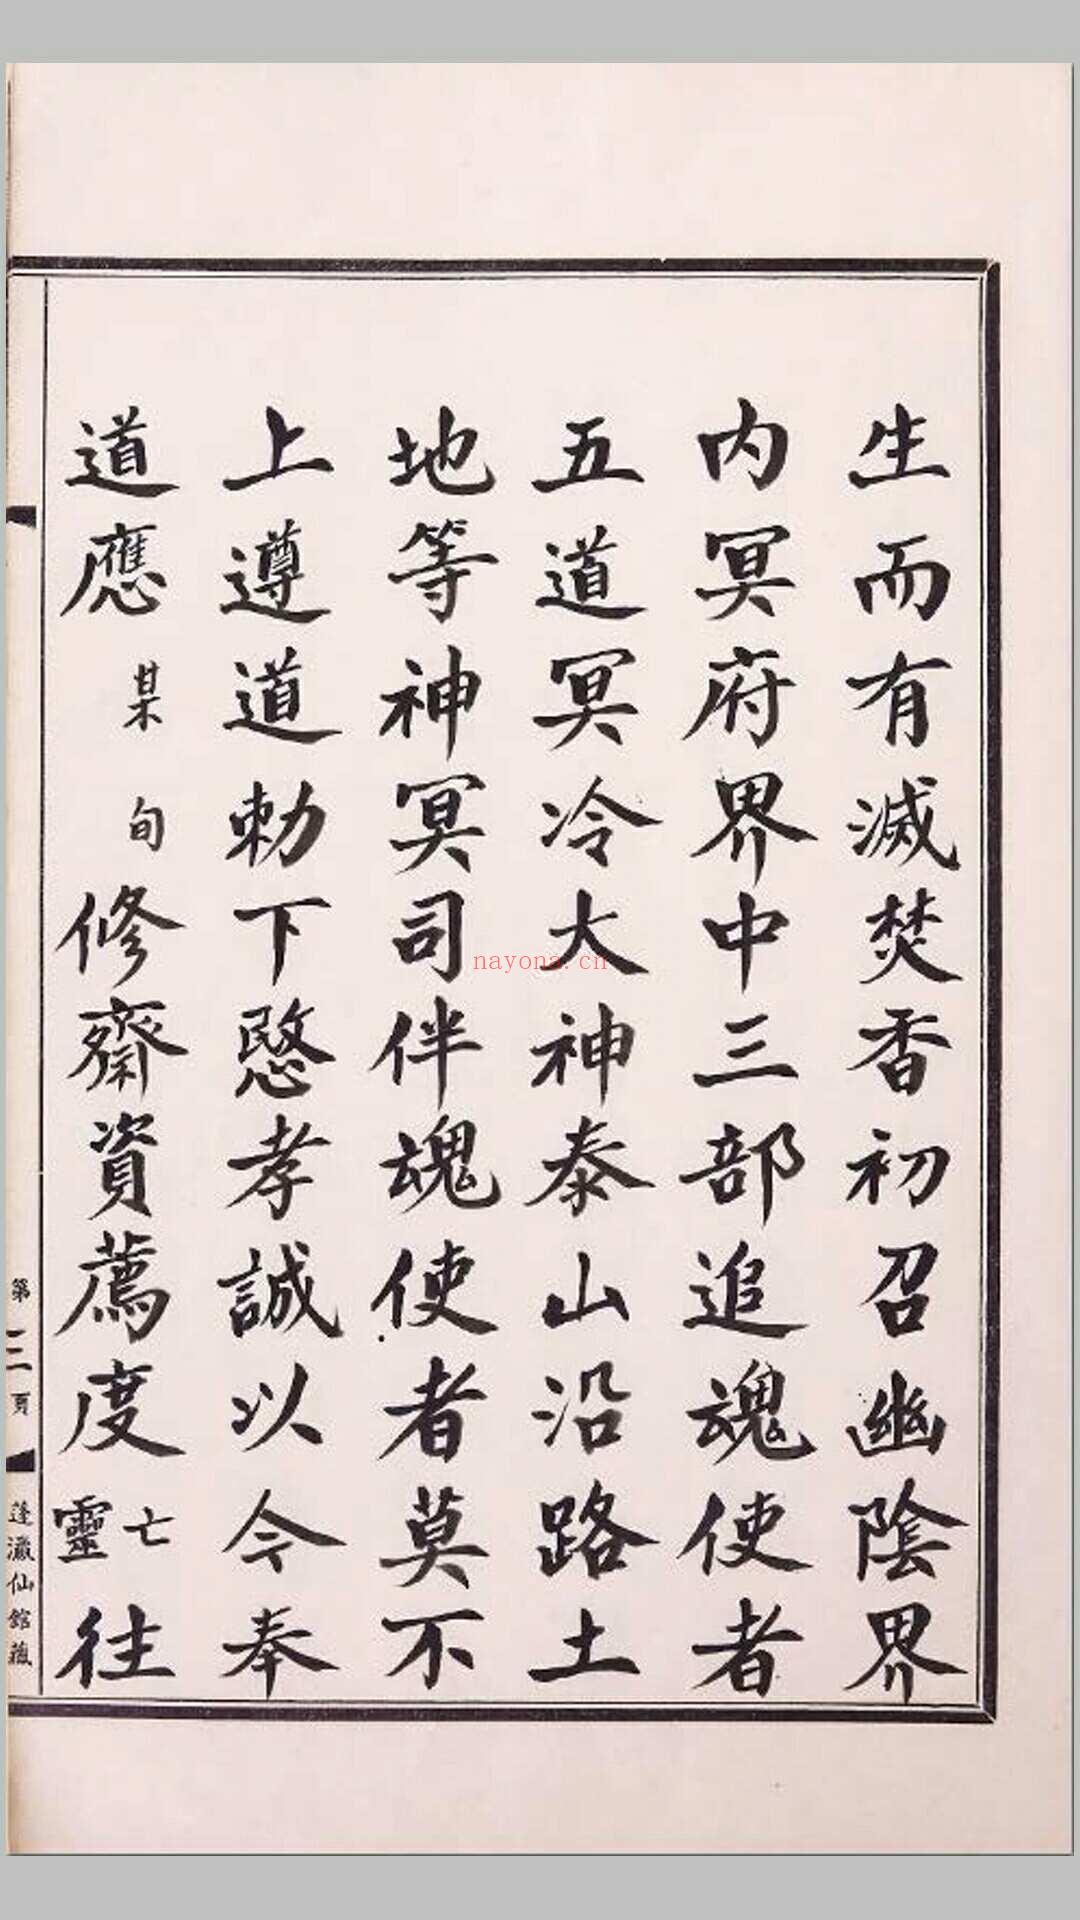 生而有滅焚香初召幽陰界
内冥府界中三部追魂使者
五道冥冷大神泰山沿路土
地等神冥司伴魂使者莫不
上遵道勅下愍孝誠以今奉
道應某旬修齋資薦度亡靈往
第三頁
蓬瀛仙館藏
nayona.cn